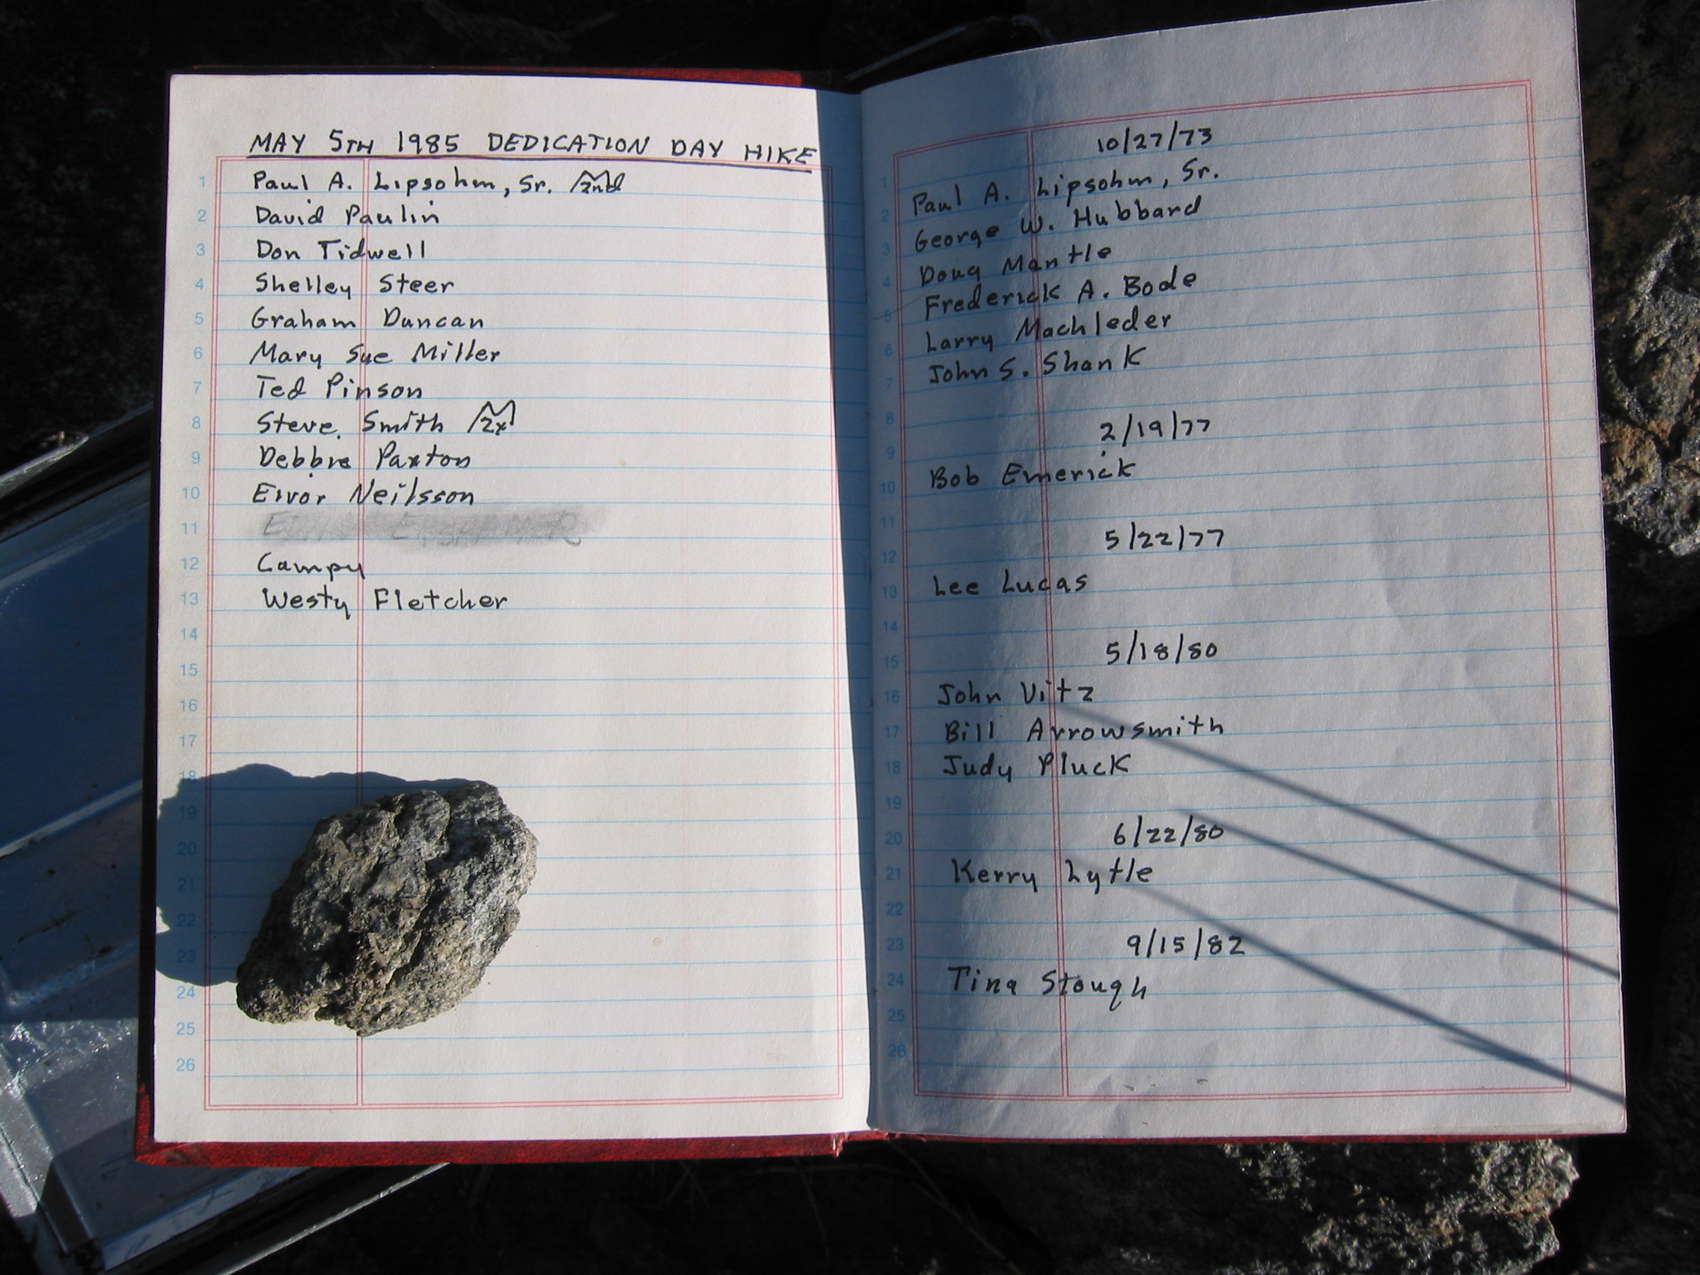 MAY 5TH 1985 DEDICATION DAY HIKE
1 Paul A. Lipsohm, Sr. 2nd
2 David Paulin
3 Don Tidwell
4 Shelley Steer
5 Graham Duncan
6 Mary Sue Miller
7 Ted Pinson
8 Steve Smith 2x
9 Debbie Paxton
10 Eivor Neilsson
11
12 Campy
13 Westy Fletcher
14
15
16
17
18
19
20
21
22
23
24
25
26
10/27/73
1 Paul A. Lipsohm, Sr.
2 George W. Hubbard
3 Doug Mantle
4 Frederick A. Bode
5 Larry Machleder
6 John S. Shank
7
8 2/19/77
9 Bob Emerick
10
11 5/22/77
12
13 Lee Lucas
14
15 5/18/80
16 John Vitz
17 Bill Arrowsmith
18 Judy Pluck
19
20 6/22/80
21 Kerry Lytle
22
23 9/15/82
24 Tina Stough
25
26